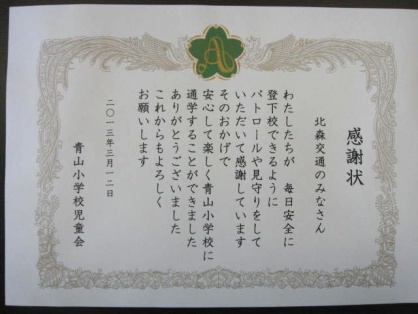 感謝状
北森交通のみなさん
わたしたちが 毎日安全に
登下校できるように
パトロールや見守りをして
いただいて感謝しています
そのおかげで
安心して楽しく青山小学校に
通学することができました
ありがとうございました
これからもよろしく
お願いします
二〇一三年三月一二日
青山小学校児童会
A